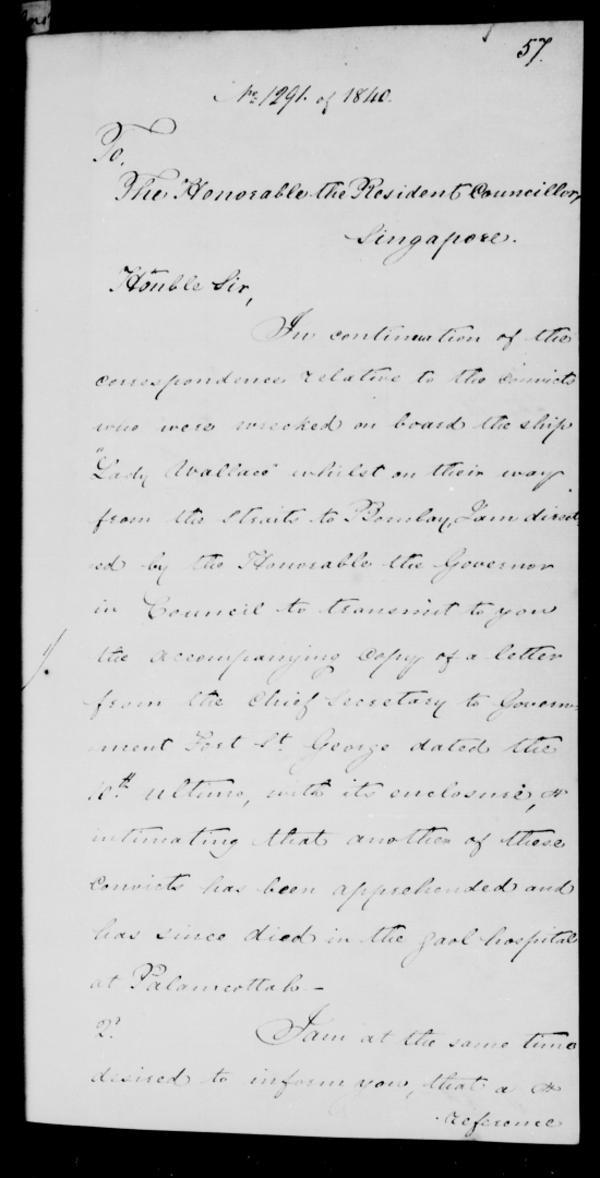 57.
No. 1291. of 1840.
To,
The Honorable the Resident Councillor,
Singapore.
Honble Sir,
In continuation of the
correspondence relative to the convicts
who were wrecked on board the ship
"Lady Wallace" whilst on their way
from the Straits to Bombay, I am direct
ed by the Honorable the Governor
in Council to transmit to you
the accompanying copy of a letter
from the Chief Secretary to Govern
ment Fort St. George dated the
10th ultimo, with its enclosure,
intimating that another of these
convicts has been apprehended and
has since died in the gaol hospital
at Palamcottah -
2d.
I am at the same time
desired to inform you, that a
reference